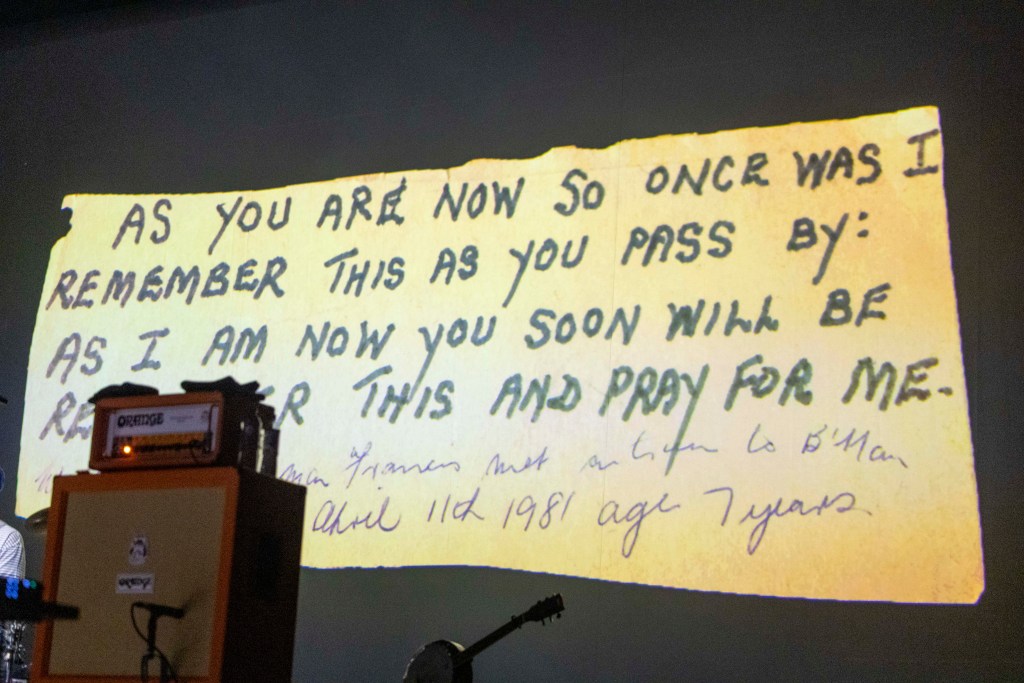 AS YOU ARE NOW SO ONCE WAS I
REMEMBER THIS AS YOU PASS BY:
AS I AM NOW YOU SOON WILL BE
RE ER THIS AND PRAY FOR ME-
Francis met to
April 11th 1981 age 7 years
ORANGE
ORANGE